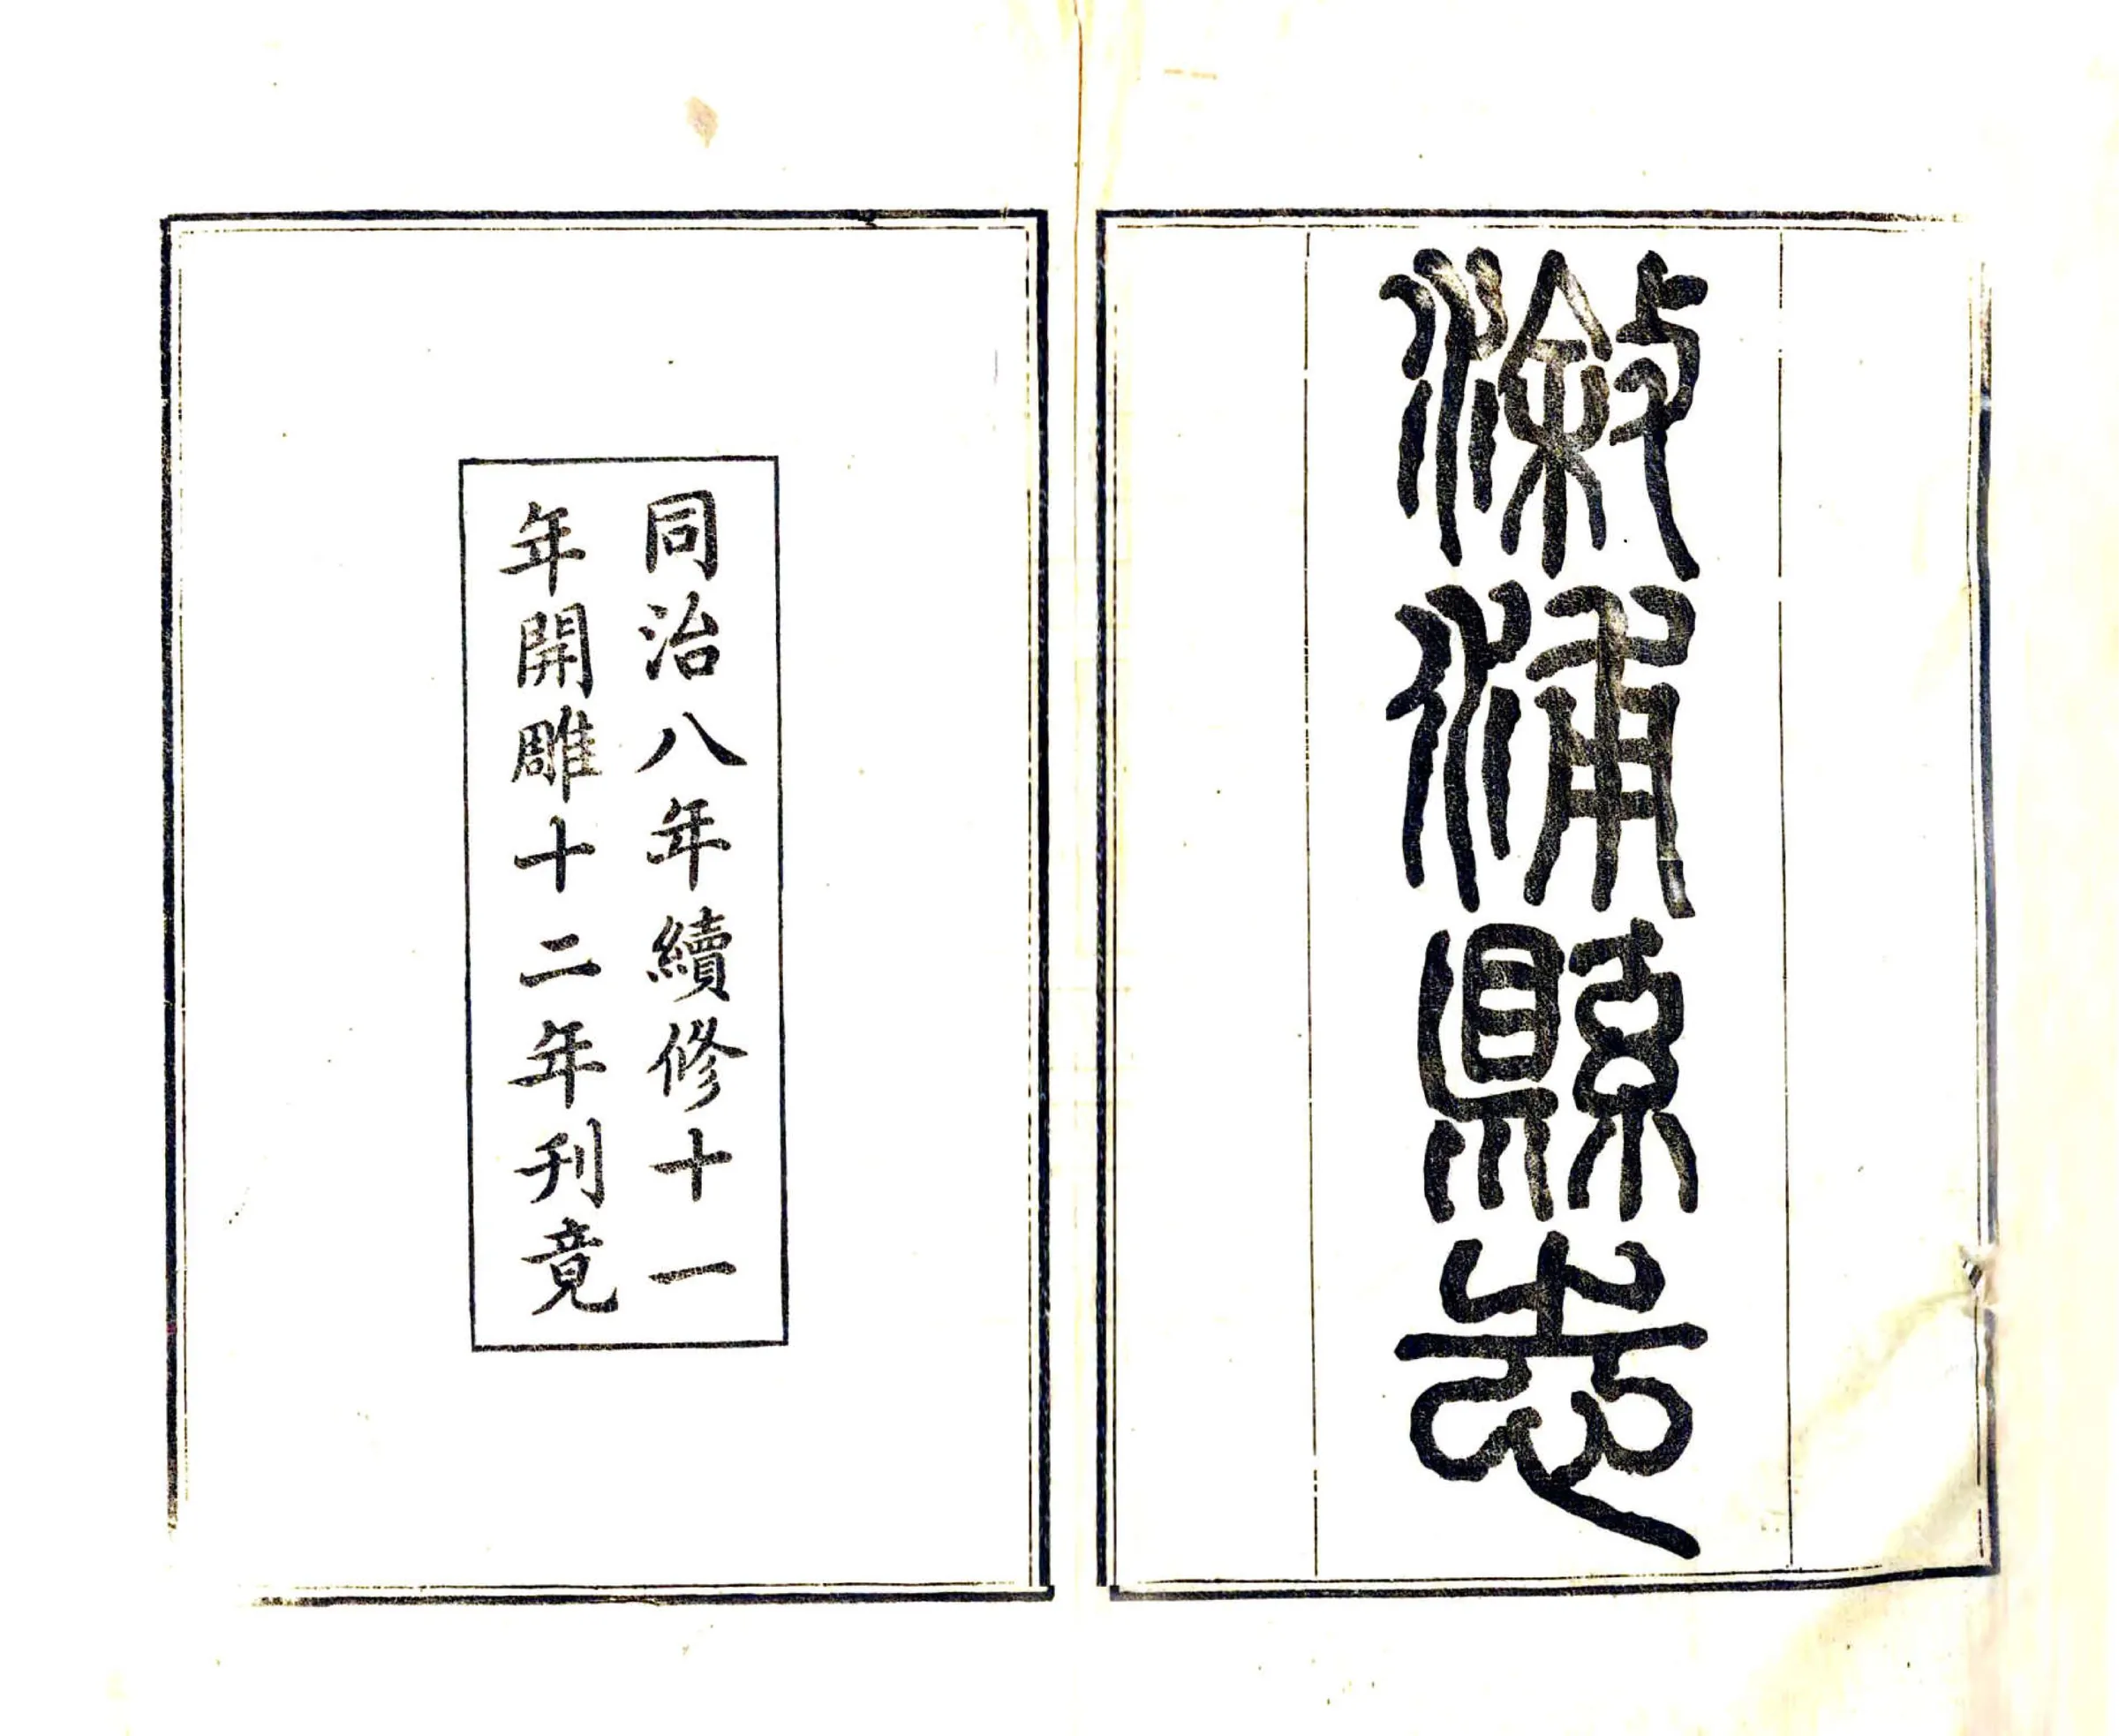 漵浦縣志
同治八年續修十一
年開雕十二年刊竟